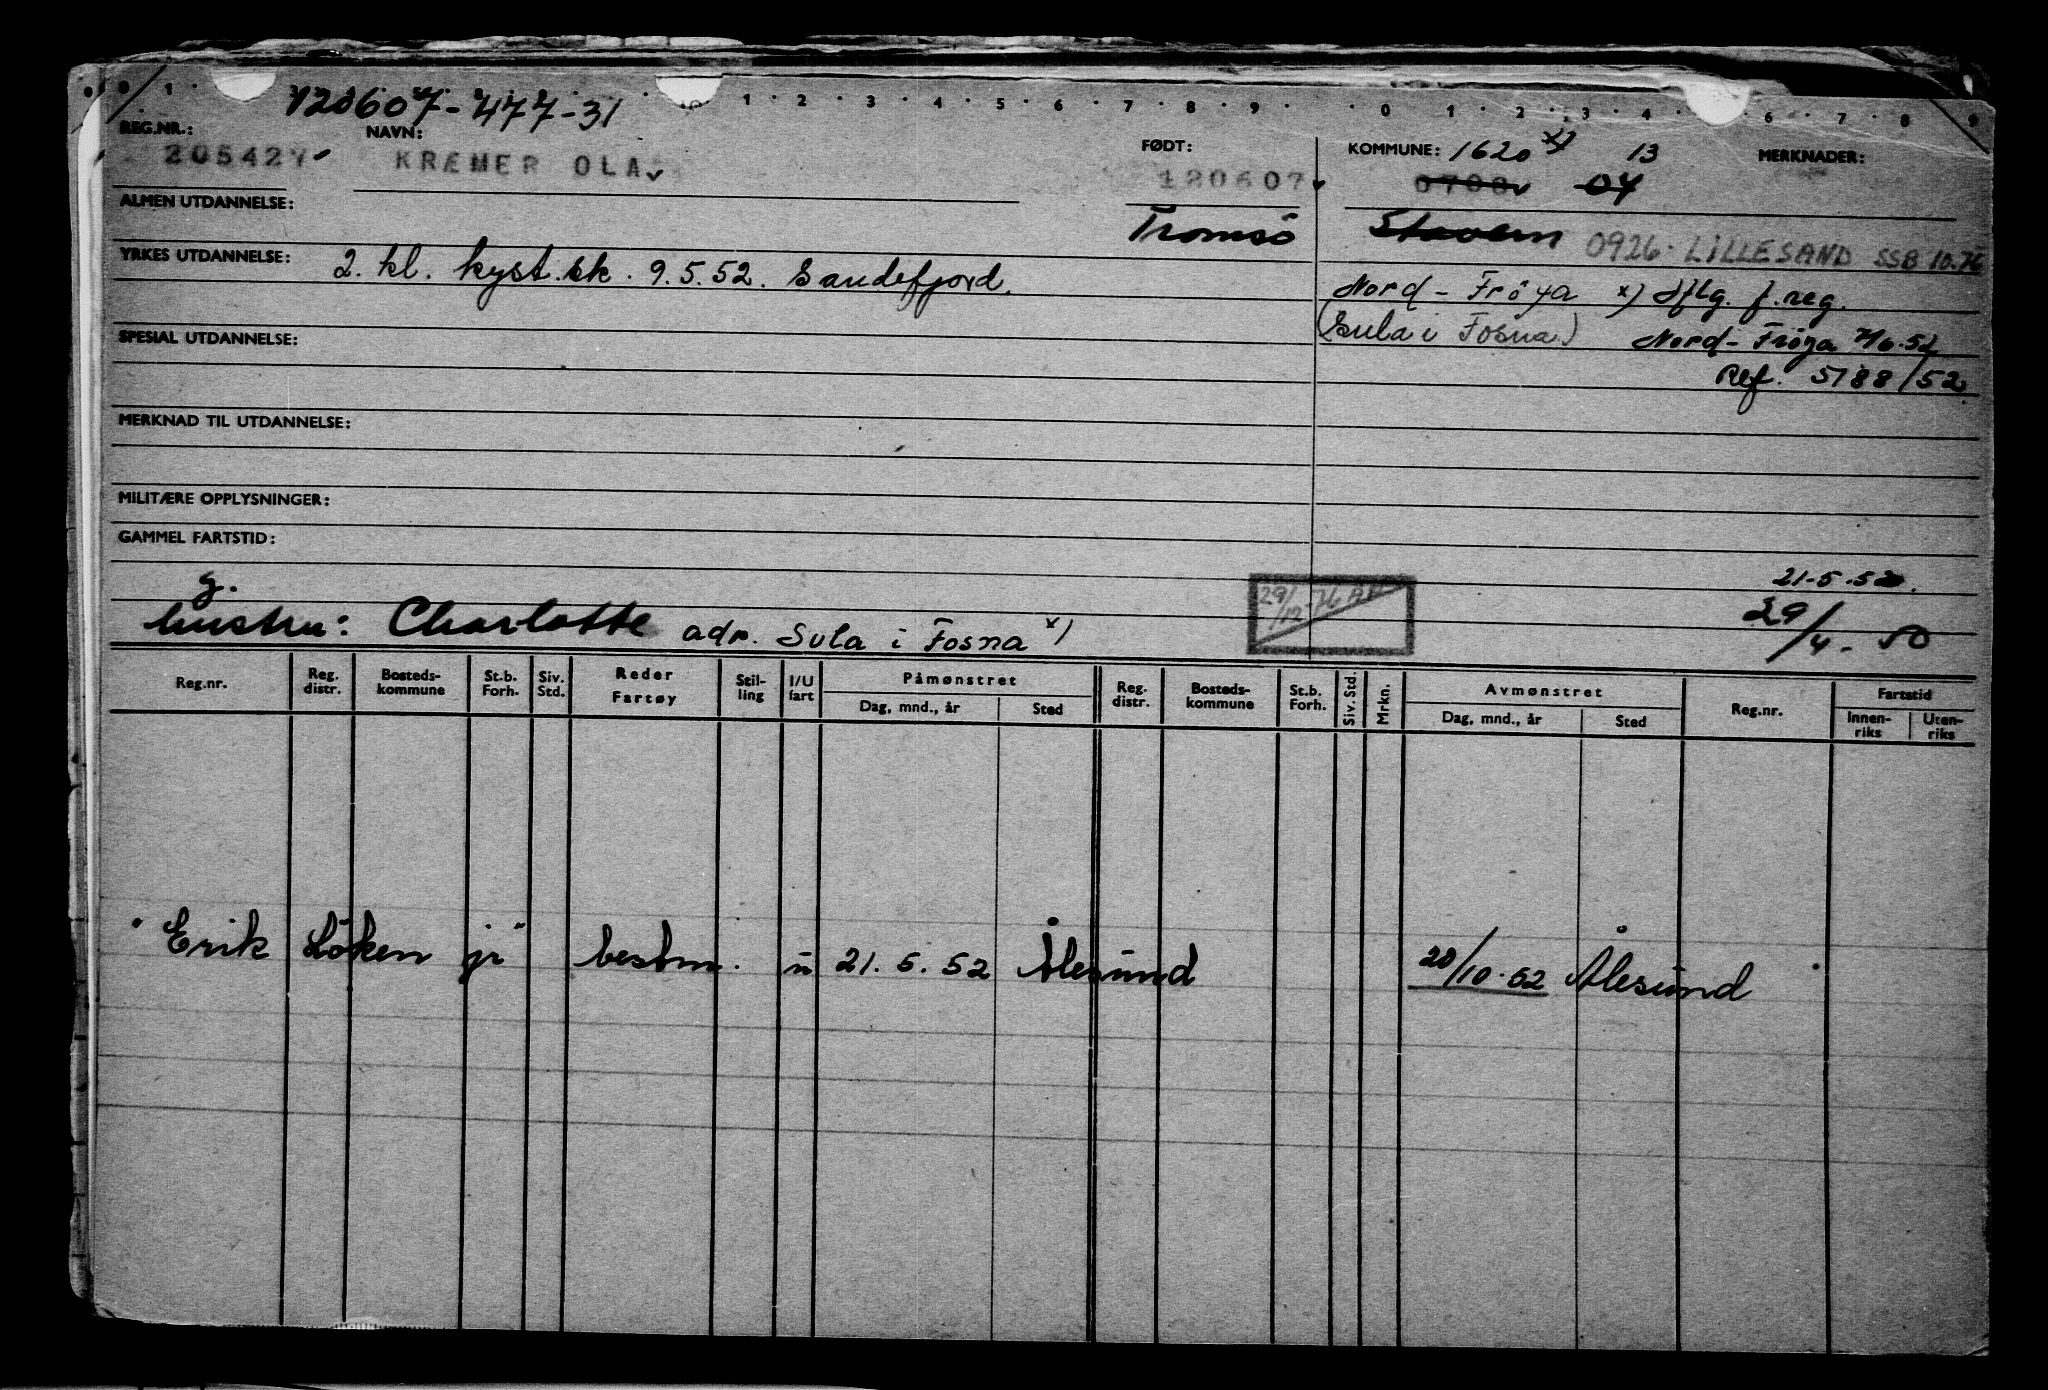 0 1 1 2 3 4 5 6 7 8 9 0 1 2 3 4 6 7 8 9
120607-477-31
REG.NR.: NAVN: FØDT: KOMMUNE: 1620 x) 13 MERKNADER:
205427 KRÆMER OLA 120607 0708 07
ALMEN UTDANNELSE: Tromsö Stavern 0926 · LILLESAND SSB 10.76
YRKES UTDANNELSE: 2. kl. kyst.sk. 9.5.52. Sandefjord. Nord - Fröya x) iflg. f.reg.
(Sula i Fosna.) Nord - Fröya 7/6.52
SPESIAL UTDANNELSE: Ref. 5188/52.
MERKNAD TIL UTDANNELSE:
MILITÆRE OPPLYSNINGER:
GAMMEL FARTSTID:
g. 29/12-76 21.5.52.
hustru: Charlotte adr. Sula i Fosna x) 29/4-50
Reg.nr. Reg. distr. Bosteds-kommune St.b. Forh. Siv. Std. Reder Fartøy Stil-ling I/U fart Påmønstret Dag, mnd., år Sted Reg. distr. Bosteds-kommune St.b. Forh. Siv. Std. Mrkn. Avmønstret Dag, mnd., år Sted Reg.nr. Fartstid Innen-riks Uten-riks
"Erik Löken jr" bestm. u 21.5.52 Ålesund 20/10.52 Ålesund